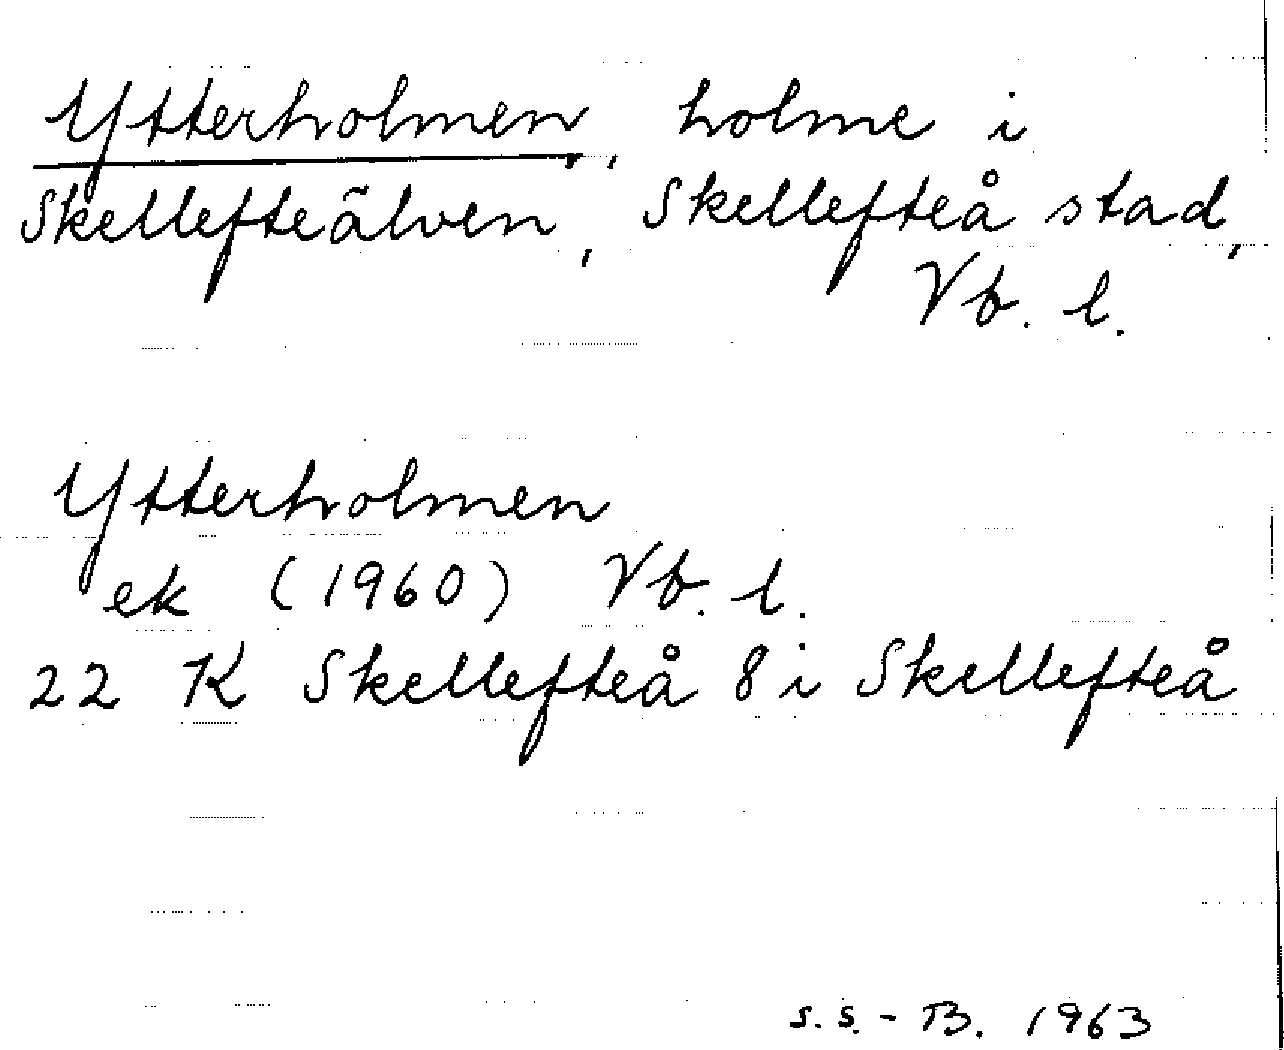 Ytterholmen, holme i
Skellefteälven, Skellefteå stad,
Vb. l.
Ytterholmen
ek (1960) Vb. l.
22 K Skellefteå 8 i Skellefteå
S. S. - B. 1963